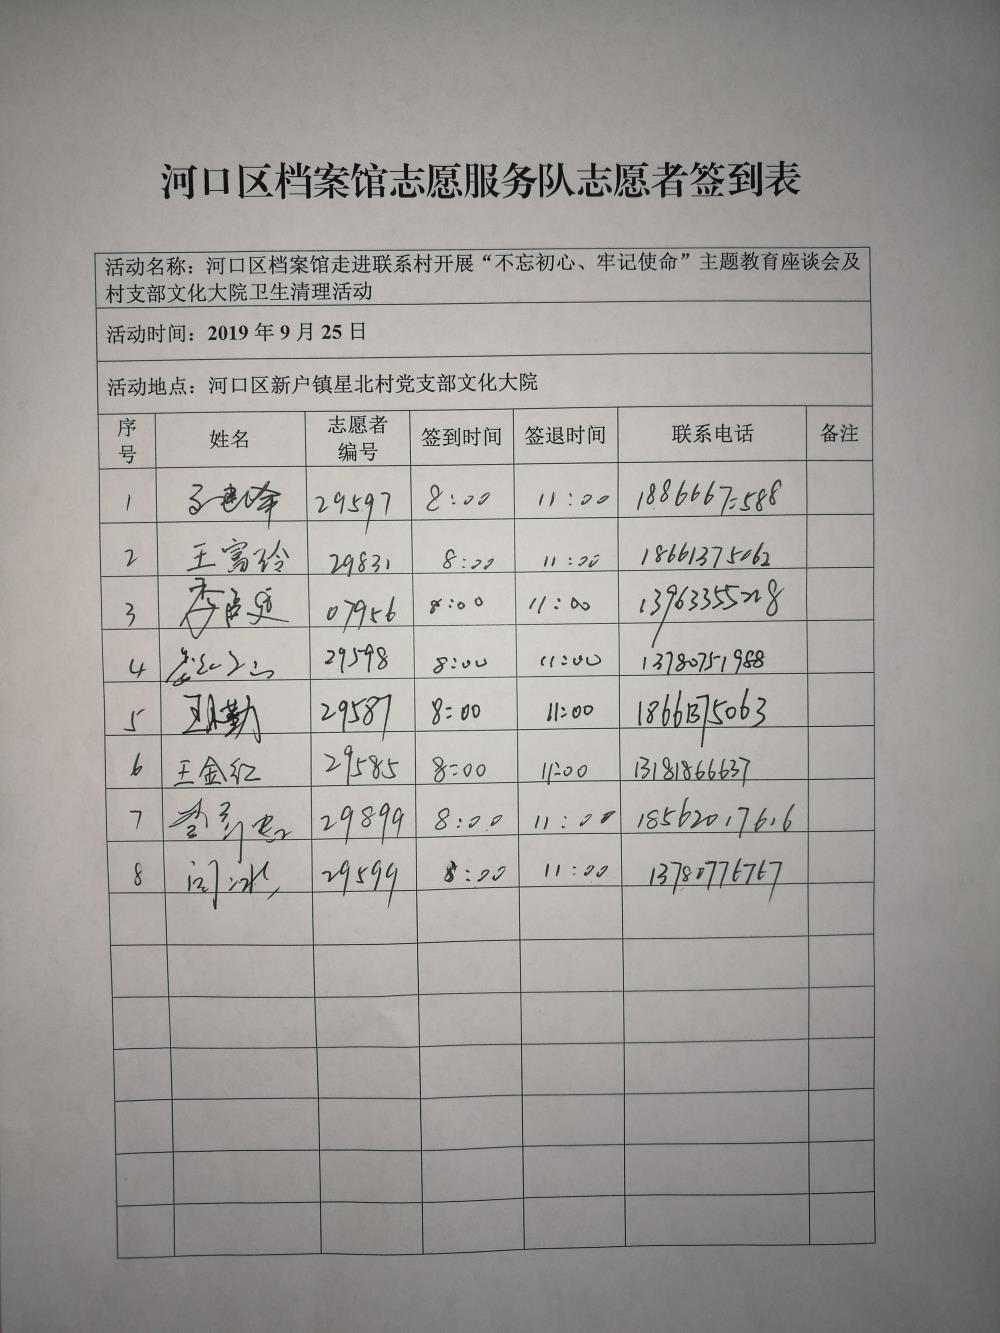 河口区档案馆志愿服务队志愿者签到表
活动名称：河口区档案馆走进联系村开展“不忘初心、牢记使命”主题教育座谈会及
村支部文化大院卫生清理活动
活动时间：2019 年 9 月 25 日
活动地点：河口区新户镇星北村党支部文化大院
序号 姓名 志愿者编号 签到时间 签退时间 联系电话 备注
1 29597 8:00 11:00
2 王富玲 29831 8:00 11:00 18661375062
3 07956 8:00 11:00
4 29598 8:00 11:00 13780751988
5 29587 8:00 11:00 18661375063
6 王金红 29585 8:00 11:00 13181866637
7 29899 8:00 11:00 18562017616
8 29599 8:00 11:00 13780776767